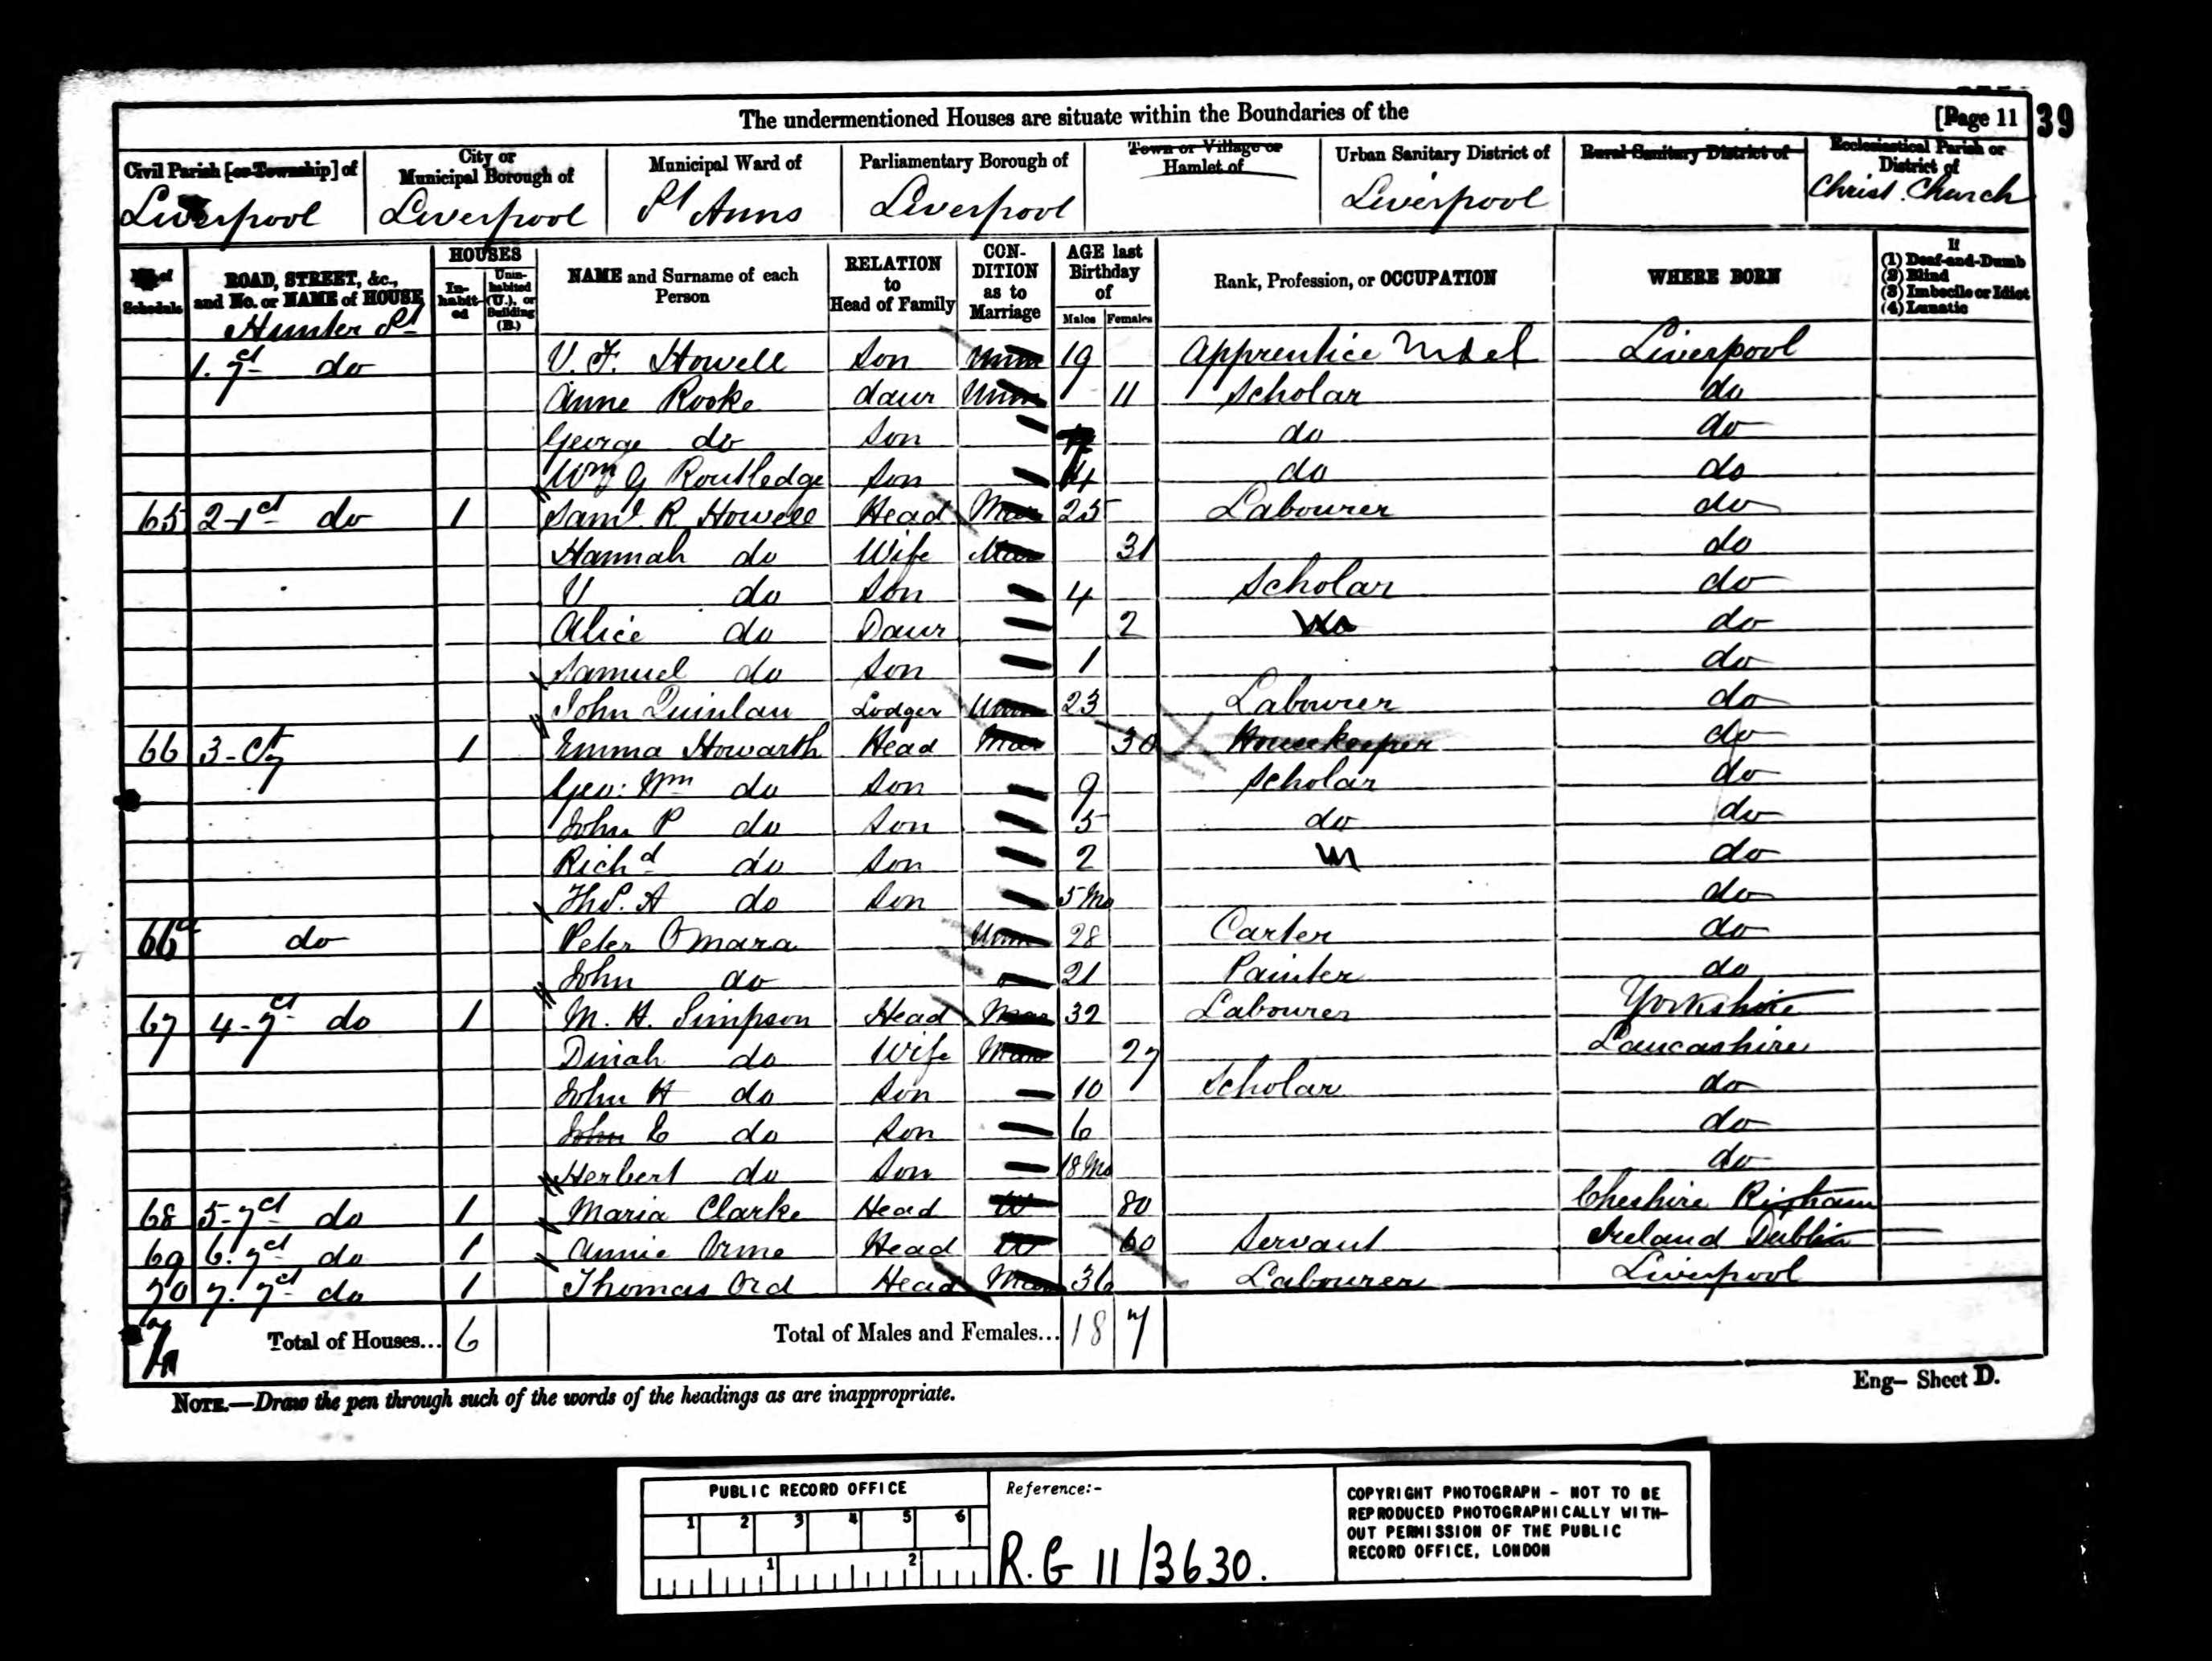 The undermentioned Houses are situate within the Boundaries of the [Page 11 39
Civil Parish [or Township] of City or Municipal Borough of Municipal Ward of Parliamentary Borough of Town or Village or Hamlet of Urban Sanitary District of Rural Sanitary District of Ecclesiastical Parish or District of
Liverpool Liverpool St Anns Liverpool Liverpool Christ Church
No. of Schedule ROAD, STREET, &c., and No. or NAME of HOUSE HOUSES Inhabited Uninhabited (U.), or Building (B.) NAME and Surname of each Person RELATION to Head of Family CONDITION as to Marriage AGE last Birthday of Males Females Rank, Profession, or OCCUPATION WHERE BORN If (1) Deaf-and-Dumb (2) Blind (3) Imbecile or Idiot (4) Lunatic
Hunter St
1. 7 ct do V. F. Howell Son Unm 19 Apprentice Liverpool
Anne Rooke daur Unm 11 Scholar do
George do Son do do
Wm G Routledge Son 4 do do
65 2-1 ct do 1 Saml. R. Howell Head Mar 25 Labourer do
Hannah do Wife Mar 31 do
V do Son 4 Scholar do
Alice do Daur 2 do
Samuel do Son 1 do
John Quinlan Lodger Unm 23 Labourer do
66 3-Ct 7 1 Emma Howarth Head Mar 30 Housekeeper do
Geo: Wm do Son 9 Scholar do
John P do Son 5 do do
Richd do Son 2 do
Ths. A do Son 5 Mo do
66a do Peter Omara Unm 28 Carter do
John do 21 Painter do
67 4-7 ct do 1 M. H. Simpson Head Mar 32 Labourer Yorkshire
Dinah do Wife Mar 27 Lancashire
John H do Son 10 Scholar do
John E do Son 6 do
Herbert do Son 18 Mo do
68 5-7 ct do 1 Maria Clarke Head W 80 Cheshire
69 6-7 ct do 1 Annie Orme Head W 60 Servant Ireland Dublin
70 7-7 ct do 1 Thomas Ord Head Mar 36 Labourer Liverpool
Total of Houses... 6 Total of Males and Females... 18 7
NOTE.—Draw the pen through such of the words of the headings as are inappropriate.
Eng— Sheet D.
PUBLIC RECORD OFFICE
1 2 3 4 5 6
1 2
Reference:-
R.G 11/3630.
COPYRIGHT PHOTOGRAPH - NOT TO BE
REPRODUCED PHOTOGRAPHICALLY WITH-
OUT PERMISSION OF THE PUBLIC
RECORD OFFICE, LONDON